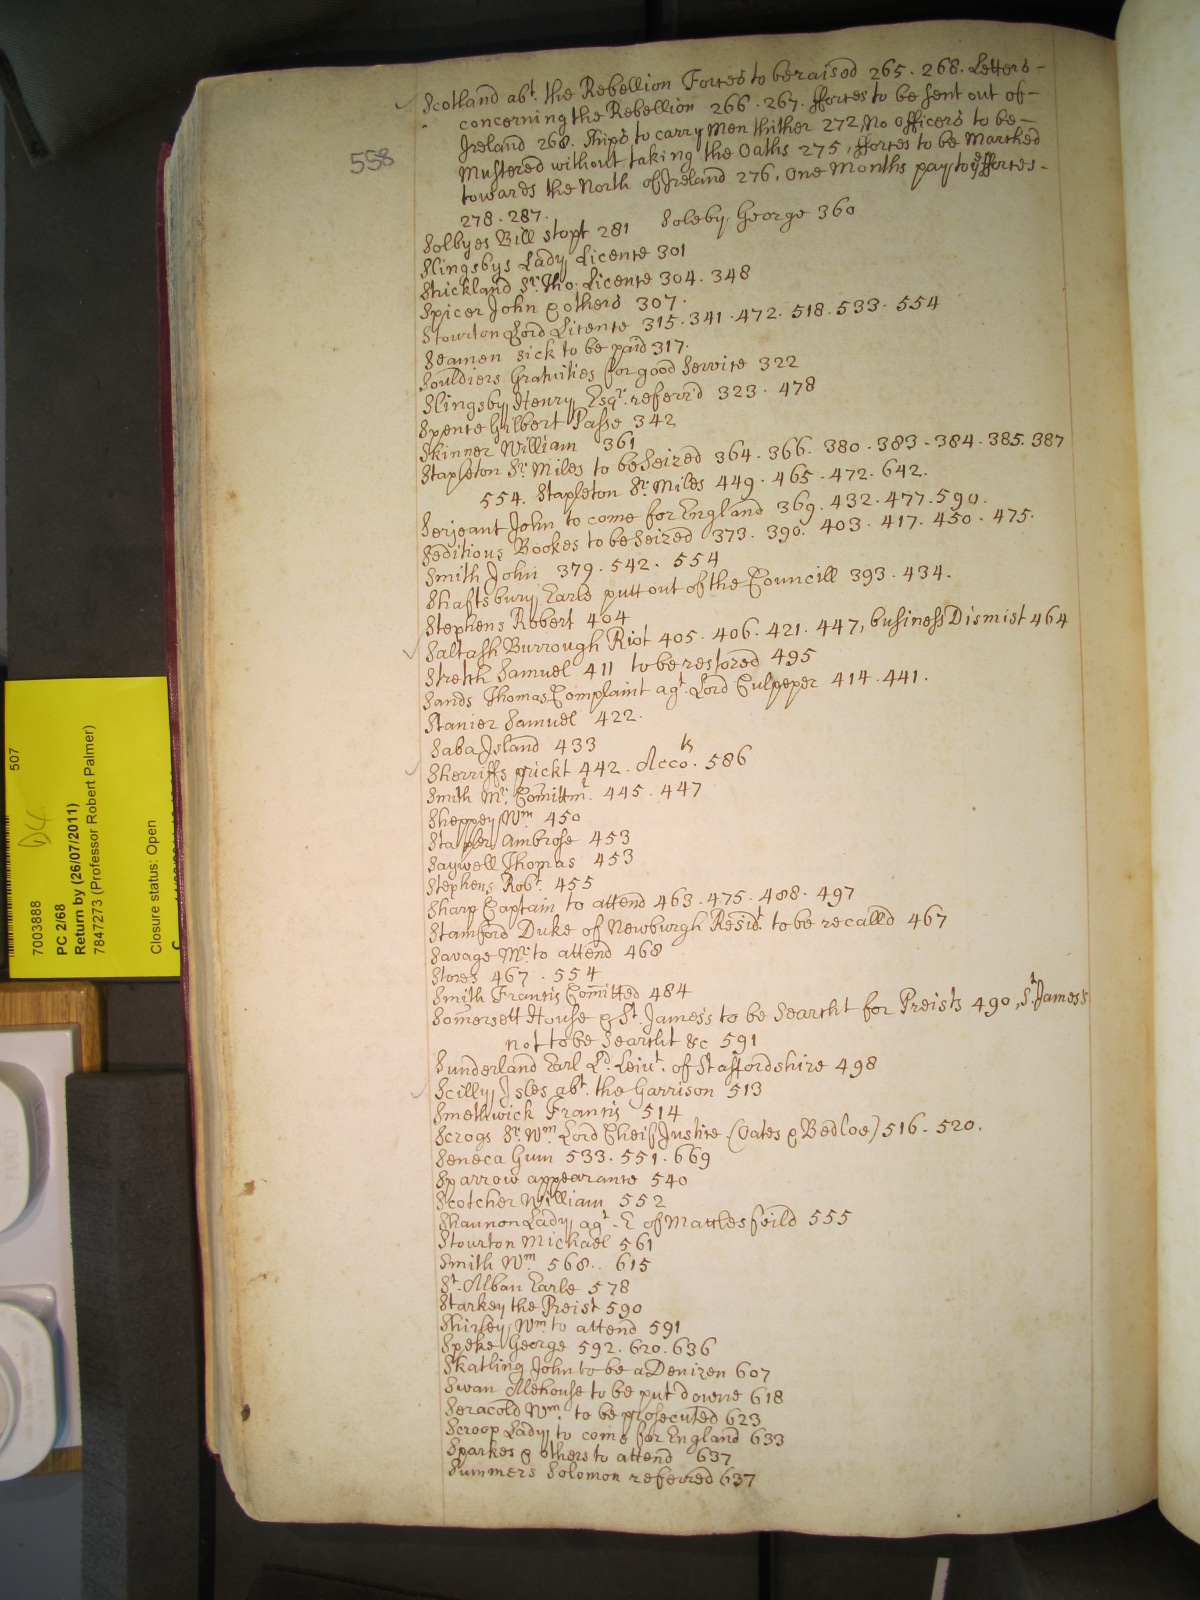 Scotland abt. the Rebellion Forces to be raised 265. 268. Letters -
concerning the Rebellion 266. 267. fforces to be sent out of -
Ireland 268. Ships to carry Men thither 272, No officers to be -
Mustered without taking the Oaths 275, fforces to be Marched
towards the North of Ireland 276, One Months pay to ye fforces -
278. 287.
558
Solbyes Bill stopt 281 Soleby George 360
Slingsbys Lady Licence 301
Strickland Sr. Tho: Licence 304. 348
Spicer John & others 307.
Stourton Lord Licence 315. 341. 472. 518. 533. 554
Seamen sick to be paid 317.
Souldiers Gratuities for good Service 322
Slingsby Henry Esqr. referr'd 323. 478
Spence Gilbert Passe 342
Skinner William 361
Stapleton Sr. Miles to be Seized 364. 366. 380. 383. 384. 385. 387
554. Stapleton Sr. Miles 449. 465. 472. 642.
Serjeant John to come for England 369. 432. 477. 590.
Seditious Bookes to be Seized 373. 390. 403. 417. 450. 475.
Smith John 379. 542. 554
Shaftsbury Earle putt out of the Councill 393. 434.
Stephens Robert 404
Saltash Burrough Riot 405. 406. 421. 447, business Dismist 464
Stretch Samuel 411 to be restored 495
Sands Thomas Complaint agt. Lord Culpeper 414. 441.
Stanier Samuel 422.
Saba Island 433
Sherriffs prickt 442. Acco.ts 586
Smith Mr. Comittmt. 445. 447
Sheppey Wm 450
Stapler Ambrose 453
Saywell Thomas 453
Stephens Robt. 455
Sharp Captain to attend 463. 475. 488. 497
Stamford Duke of Newburgh Residt. to be recalld 467
Savage Mr. to attend 468
Stores 467. 554
Smith Francis Comitted 484
Somersett House & St. James's to be Searcht for Preists 490, St. James's
not to be Searcht &c 591
Sunderland Earl Ld. Leiut. of Staffordshire 498
Scilly Isles abt. the Garrison 513
Smethwick Francis 514
Scrogs Sr. Wm Lord Cheif Justice (Oates & Bedloe) 516. 520.
Seneca Gum 533. 551. 669
Sparrow appearance 540
Scotcher William 552
Shannon Lady agt. E of Macclesfeild 555
Stourton Michael 561
Smith Wm 568. 615
St. Alban Earle 578
Starkey the Preist 590
Shirley Wm to attend 591
Speke George 592. 620. 636
Skatling John to be a Denizen 607
Swan Alehouse to be put downe 618
Seracold Wm to be prosecuted 623
Scroop Lady to come for England 633
Sparkes & others to attend 637
Summers Solomon referred 637
507
7003888
PC 2/68
Return by (26/07/2011)
7847273 (Professor Robert Palmer)
Closure status: Open